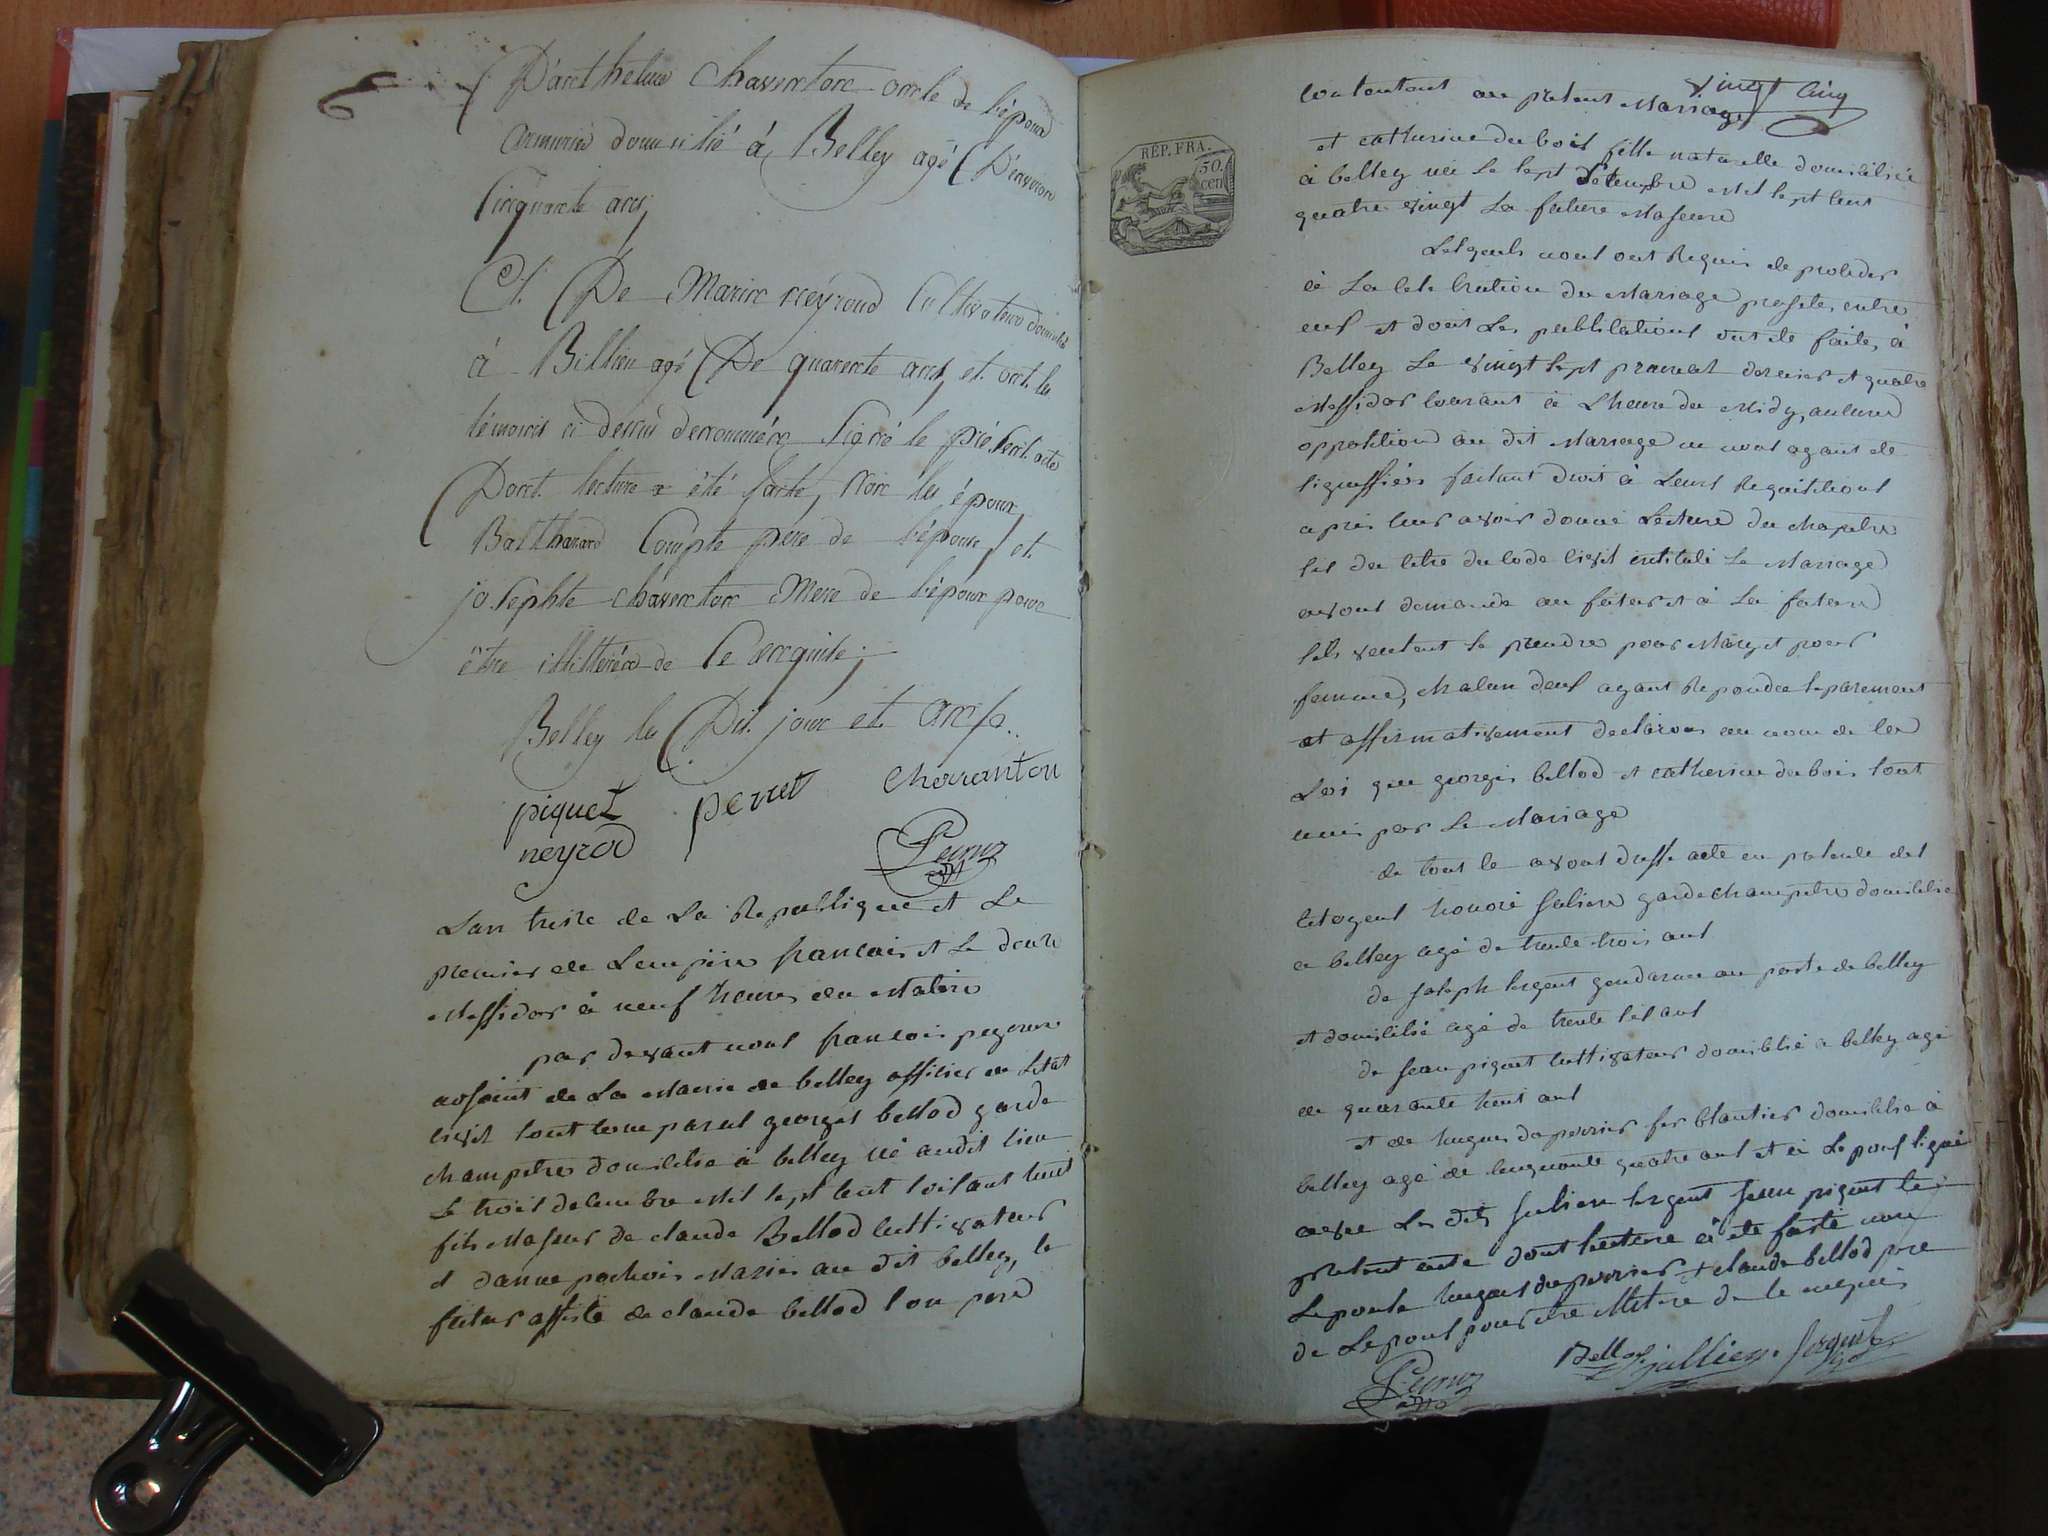 D'anthelme Chavanton oncle de l'époux
armurié domicilié à Belley agé D'environ
Cinquante ans,
Et De Marin neyroud Cultivateur domicilié
à Billieu agé De quarente ans, et ont les
témoins ci dessus dénommés Signé le présent acte
Dont lecture a été faite, Non les époux,
Balthazard Compte père de l'épouse, et
josephte Chavanton Mere de l'époux pour
être illitterés de Ce enquis;
Belley les Dit jour et an
piquet perret Charranton
neyrod
Lan treize de La Republique et Le
premier de Lempire francais et Le douze
Messidor à neuf heures du Matin
par devant nous francois peyroux
adjoint de La Mairie de belley officier de Letat
civil sont comparus georges bellod garde
champetre domicilié à belley né audit lieu
Le trois decembre Mil sept cent soisant huit
fils Majeur de claude Bellod cultivateur
et danne pochois Mariés au dit belley, le
futur assisté de claude bellod son pere
vingt cinq
consentant au présent Mariage
et catherine dubois fille naturelle domiciliée
à belley née Le sept Septembre Mil sept cent
quatre vingt La future Majeure
Lesquels nous ont Requis de proceder
à La celebration du Mariage projeté entre
eux et dont Les publications ont été faites à
Belley Le vingt sept prairial dernier et quatre
Messidor courant à Lheure du Midy, aucune
opposition au dit Mariage ne nous ayant été
signiffiée faisant droit à Leurs Requisitions
apres leur avoir donné Lecture du chapitre
six du titre du code civil intitulé Le Mariage
avons demandé au futur et à La future
sils veulent se prendre pour Mary et pour
femme, chacun deux ayant Repondu separement
et affirmativement declarons au nom de la
Loi que georges bellod et catherine dubois sont
unis par Le Mariage
de tout ce avons dressé acte en presence des
citoyens honoré julien garde champetre domicilié
a belley agé de trente trois ans
de joseph sergent gendarme au poste de belley
et domicilié agé de trente six ans
de jean piquet cultivateur domicilié a belley agé
de quarante huit ans
et de hugues duperrier ferblantier domicilié à
belley agé de cinquante quatre ans et a Le poux signé
avec Les dits julien sergent jean piquet le
présent acte dont lecture a été faite non
Le pouse hugues duperrier et claude bellod pere
de Le poux pour etre illiteré de ce enquis
Bellod jullien Sergent